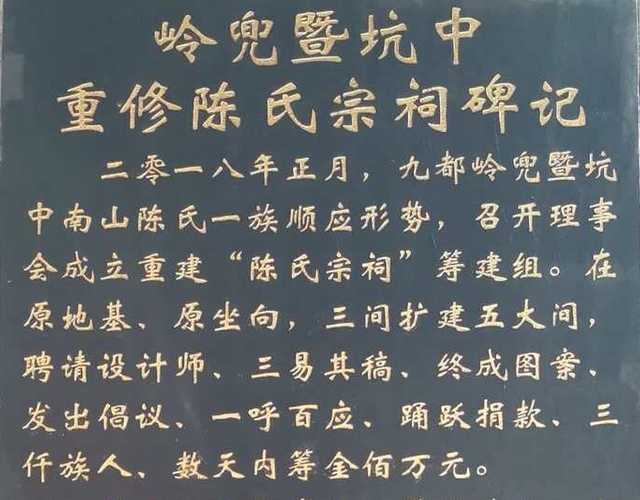 岭兜暨坑中
重修陈氏宗祠碑记
二零一八年正月，九都岭兜暨坑
中南山陈氏一族顺应形势，召开理事
会成立重建“陈氏宗祠”筹建组。在
原地基、原坐向，三间扩建五大间，
聘请设计师、三易其稿、终成图案、
发出倡议、一呼百应、踊跃捐款、三
仟族人、数天内筹金佰万元。